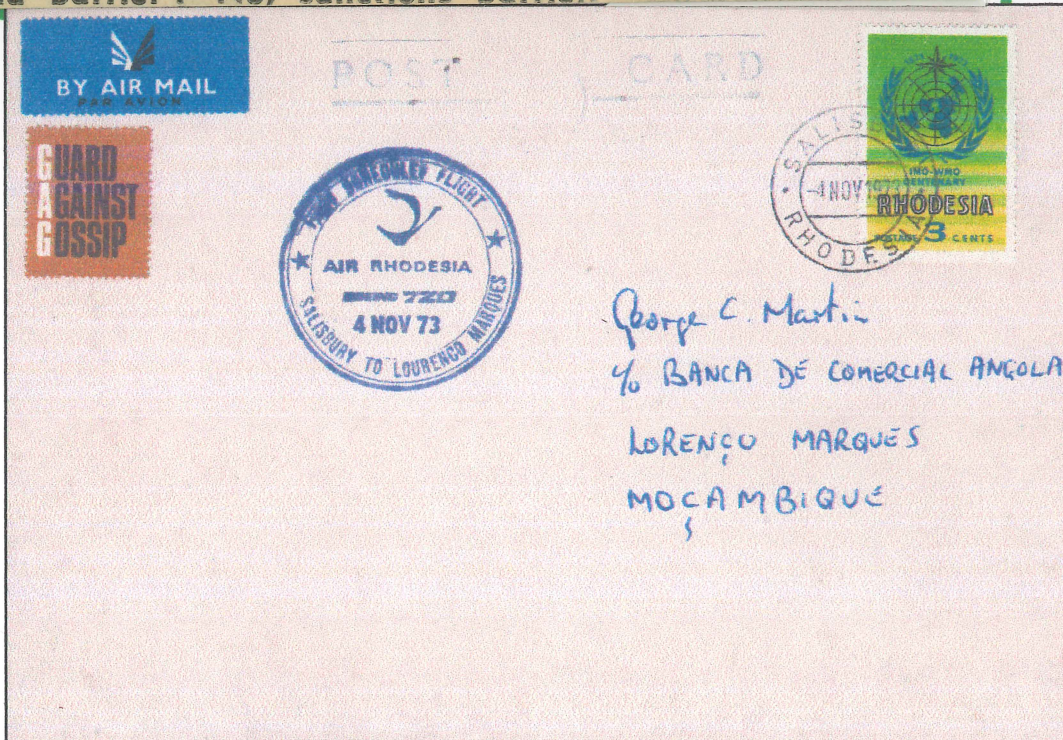 BY AIR MAIL
PAR AVION
POST CARD
GUARD
AGAINST
GOSSIP
SCHEDULED FLIGHT
AIR RHODESIA
BOEING 720
4 NOV 73
SALISBURY TO LOURENCO MARQUES
SALIS
-4 NOV 1973
RHODESIA
IMO-WMO
CENTENARY
RHODESIA
POSTAGE 3 CENTS
George C. Martin
c/o BANCA DE COMERCIAL ANGOLA
LORENÇO MARQUES
MOÇAMBIQUE